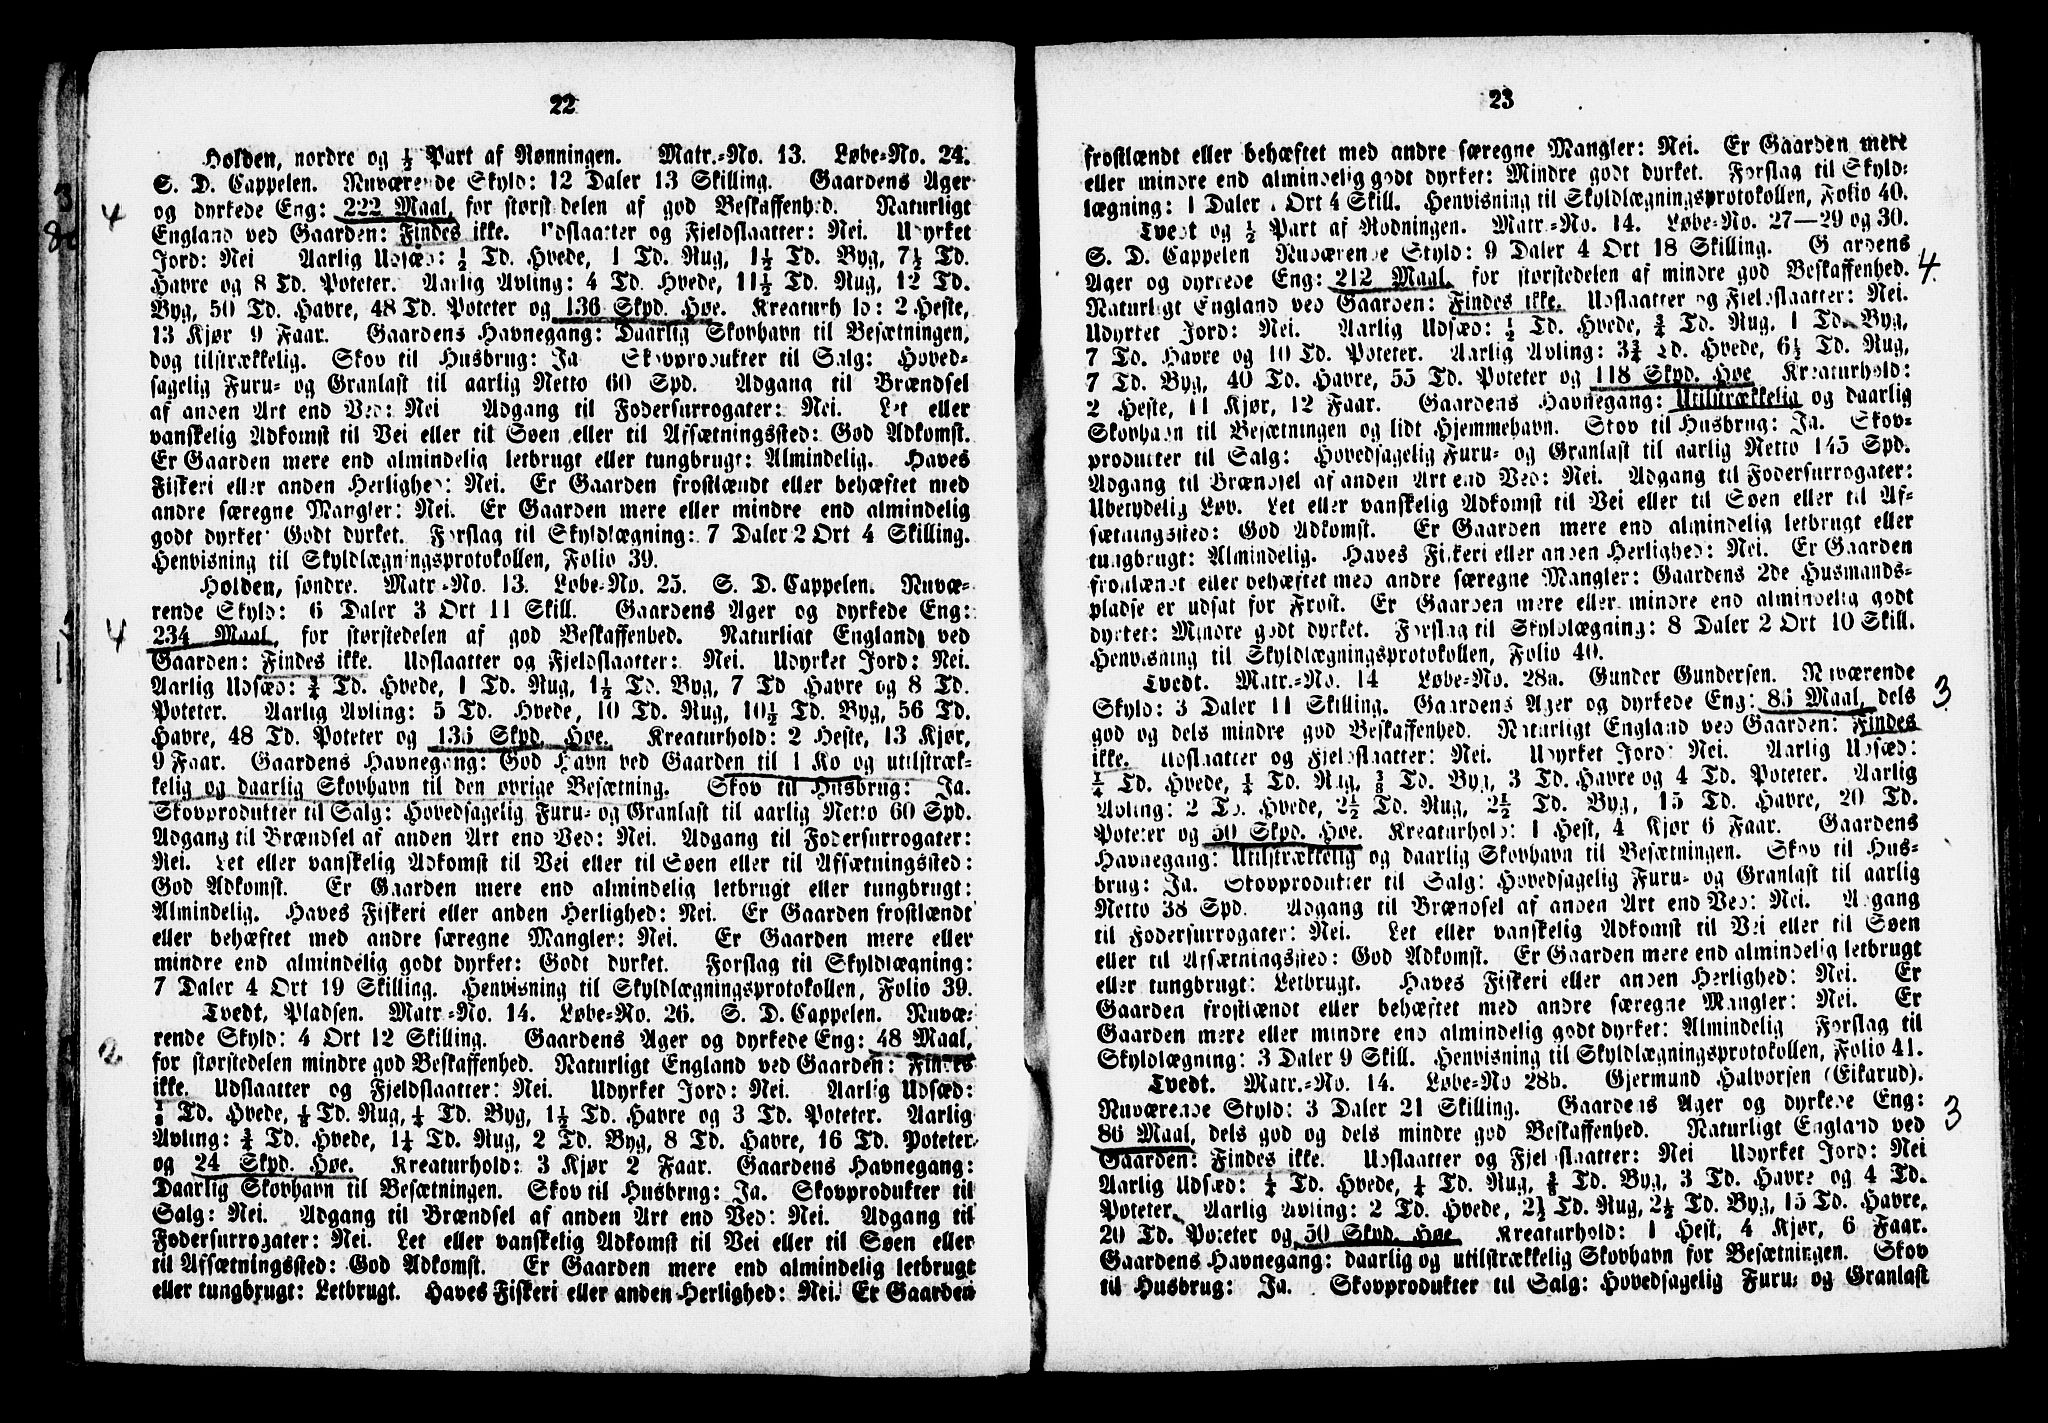 22
Holden, nordre og ½ Part af Rønningen. Matr.-No. 13. Løbe-No. 24.
S. D. Cappelen. Nuværende Skyld: 12 Daler 13 Skilling. Gaardens Ager
og dyrkede Eng: 222 Maal, for størstedelen af god Beskaffenhed. Naturligt
England ved Gaarden: Findes ikke. Udslaatter og Fjeldslaatter: Nei. Udyrket
Jord: Nei Aarlig Udsæd: ½ Td. Hvede, 1 Td. Rug, 1½ Td. Byg, 7½ Td.
Havre og 8 Td. Poteter. Aarlig Avling: 4 Td. Hvede, 11½ Td. Rug, 12 Td.
Byg, 50 Td. Havre, 48 Td. Poteter og 136 Skpd. Høe. Kreaturhold: 2 Heste,
13 Kjør 9 Faar. Gaardens Havnegang: Daarlig Skovhavn til Besætningen,
dog tilstrækkelig. Skov til Husbrug: Ja Skovprodukter til Salg: Hoved-
sagelig Furu- og Granlast til aarlig Netto 60 Spd. Adgang til Brændsel
af anden Art end Ved: Nei Adgang til Fodersurrogater: Nei. Let eller
vanskelig Adkomst til Vei eller til Søen eller til Afsætningssted: God Adkomst.
Er Gaarden mere end almindelig letbrugt eller tungbrugt: Almindelig. Haves
Fiskeri eller anden Herlighed: Nei. Er Gaarden frostlændt eller behæftet med
andre særegne Mangler: Nei. Er Gaarden mere eller mindre end almindelig
godt dyrket: Godt dyrket. Forslag til Skyldlægning: 7 Daler 2 Ort 4 Skilling.
Henvisning til Skyldlægningsprotokollen, Folio 39.
Holden, søndre. Matr.-No. 13. Løbe-No. 25. S. D. Cappelen. Nuvæ-
rende Skyld: 6 Daler 3 Ort 11 Skill. Gaardens Ager og dyrkede Eng:
234 Maal, for størstedelen af god Beskaffenhed. Naturligt England ved
Gaarden: Findes ikke. Udslaatter og Fjeldslaatter: Nei. Udyrket Jord: Nei.
Aarlig Udsæd: ¾ Td. Hvede, 1 Td. Rug, 1½ Td. Byg, 7 Td Havre og 8 Td.
Poteter. Aarlig Avling: 5 Td. Hvede, 10 Td. Rug, 10½ Td. Byg, 56 Td.
Havre, 48 Td. Poteter og 136 Skpd. Høe. Kreaturhold: 2 Heste, 13 Kjør,
9 Faar. Gaardens Havnegang: God Havn ved Gaarden til 1 Ko og utilstræk-
kelig og daarlig Skovhavn til den øvrige Besætning. Skov til Husbrug: Ja.
Skovprodukter til Salg: Hovedsagelig Furu- og Granlast til aarlig Netto 60 Spd.
Adgang til Brændsel af anden Art end Ved: Nei. Adgang til Fodersurrogater:
Nei. Let eller vanskelig Adkomst til Vei eller til Søen eller til Afsætningssted:
God Adkomst. Er Gaarden mere end almindelig letbrugt eller tungbrugt:
Almindelig. Haves Fiskeri eller anden Herlighed: Nei. Er Gaarden frostlændt
eller behæftet med andre særegne Mangler: Nei. Er Gaarden mere eller
mindre end almindelig godt dyrket: Godt dyrket. Forslag til Skyldlægning:
7 Daler 4 Ort 19 Skilling. Henvisning til Skyldlægningsprotokollen, Folio 39.
Tvedt, Pladsen. Matr.-No. 14. Løbe-No. 26. S. D. Cappelen. Nuvæ-
rende Skyld: 4 Ort 12 Skilling. Gaardens Ager og dyrkede Eng: 48 Maal,
for størstedelen mindre god Beskaffenhed. Naturligt England ved Gaarden: Findes
ikke. Udslaatter og Fjeldslaatter: Nei. Udyrket Jord: Nei. Aarlig Udsæd:
⅛ Td. Hvede, ⅛ Td. Rug, ¼ Td. Byg, 1½ Td. Havre og 3 Td. Poteter. Aarlig
Avling: ¾ Td. Hvede, 1¼ Td. Rug, 2 Td. Byg, 8 Td. Havre, 16 Td. Poteter
og 24 Skpd. Høe. Kreaturhold: 3 Kjør 2 Faar. Gaardens Havnegang:
Daarlig Skovhavn til Besætningen. Skov til Husbrug: Ja. Skovprodukter til
Salg: Nei. Adgang til Brændsel af anden Art end Ved: Nei. Adgang til
Fodersurrogater: Nei. Let eller vanskelig Adkomst til Vei eller til Søen eller
til Afsætningssted: God Adkomst. Er Gaarden mere end almindelig letbrugt
eller tungbrugt: Letbrugt. Haves Fiskeri eller anden Herlighed: Nei. Er Gaarden
4
4
2
23
frostlændt eller behæftet med andre særegne Mangler: Nei. Er Gaarden mere
eller mindre end almindelig godt dyrket: Mindre godt dyrket. Forslag til Skyld-
lægning: 1 Daler Ort 4 Skill. Henvisning til Skyldlægningsprotokollen, Folio 40.
Tvedt og ½ Part af Rødningen. Matr.-No. 14. Løbe-No. 27—29 og 30.
S. D. Cappelen Nuværende Skyld: 9 Daler 4 Ort 18 Skilling. Gaardens
Ager og dyrkede Eng: 212 Maal, for størstedelen af mindre god Beskaffenhed.
Naturligt England ved Gaarden: Findes ikke. Udslaatter og Fjeldslaatter: Nei.
Udyrket Jord: Nei. Aarlig Udsæd: ½ Td. Hvede, ¾ Td. Rug, 1 Td. Byg,
7 Td. Havre og 10 Td. Poteter. Aarlig Avling: 3¾ Td. Hvede, 6½ Td. Rug,
7 Td. Byg, 40 Td. Havre, 55 Td. Poteter og 118 Skpd. Høe Kreaturhold:
2 Heste, 11 Kjør, 12 Faar. Gaardens Havnegang: Utilstrækkelig og daarlig
Skovhavn til Besætningen og lidt Hjemmehavn. Skov til Husbrug: Ja. Skov-
produkter til Salg: Hovedsagelig Furu- og Granlast til aarlig Netto 145 Spd.
Adgang til Brændsel af anden Art end Ved: Nei. Adgang til Fodersurrogater:
Ubetydelig Løv. Let eller vanskelig Adkomst til Vei eller til Søen eller til Af-
sætningssted: God Adkomst. Er Gaarden mere end almindelig letbrugt eller
tungbrugt: Almindelig. Haves Fiskeri eller anden Herlighed: Nei. Er Gaarden
frostlændt eller behæftet med andre særegne Mangler: Gaardens 2de Husmands-
pladse er udsat for Frost. Er Gaarden mere eller mindre end almindelig godt
dyrket: Mindre godt dyrket. Forslag til Skyldlægning: 8 Daler 2 Ort 10 Skill.
Henvisning til Skyldlægningsprotokollen, Folio 40.
Tvedt. Matr.-No. 14 Løbe-No. 28a. Gunder Gundersen. Nuværende
Skyld: 3 Daler 11 Skilling. Gaardens Ager og dyrkede Eng: 86 Maal, dels
god og dels mindre god Beskaffenhed. Naturligt England ved Gaarden: Findes
ikke. Udslaatter og Fjeldslaatter: Nei. Udyrket Jord: Nei. Aarlig Udsæd:
¼ Td. Hvede, ¼ Td. Rug, ⅜ Td. Byg, 3 Td. Havre og 4 Td. Poteter. Aarlig
Avling: 2 Td. Hvede, 2½ Td. Rug, 2½ Td. Byg, 15 Td. Havre, 20 Td.
Poteter og 50 Skpd. Høe. Kreaturhold: 1 Hest, 4 Kjør 6 Faar. Gaardens
Havnegang: Utilstrækkelig og daarlig Skovhavn til Besætningen. Skov til Hus-
brug: Ja. Skovprodukter til Salg: Hovedsagelig Furu- og Granlast til aarlig
Netto 38 Spd. Adgang til Brændsel af anden Art end Ved: Nei. Adgang
til Fodersurrogater: Nei. Let eller vanskelig Adkomst til Vei eller til Søen
eller til Afsætningssted: God Adkomst. Er Gaarden mere end almindelig letbrugt
eller tungbrugt: Letbrugt. Haves Fiskeri eller anden Herlighed: Nei. Er
Gaarden frostlændt eller behæftet med andre særegne Mangler: Nei. Er
Gaarden mere eller mindre end almindelig godt dyrket: Almindelig Forslag til
Skyldlægning: 3 Daler 9 Skill. Henvisning til Skyldlægningsprotokollen, Folio 41.
Tvedt. Matr.-No. 14. Løbe-No 28b. Gjermund Halvorsen (Eikarud).
Nuværende Skyld: 3 Daler 21 Skilling. Gaardens Ager og dyrkede Eng:
86 Maal, dels god og dels mindre god Beskaffenhed. Naturligt England ved
Gaarden: Findes ikke. Udslaatter og Fjeldslaatter: Nei Udyrket Jord: Nei
Aarlig Udsæd: ¼ Td. Hvede, ¼ Td. Rug, ⅜ Td. Byg, 3 Td. Havre og 4 Td.
Poteter. Aarlig Avling: 2 Td. Hvede, 2½ Td. Rug, 2½ Td. Byg, 15 Td. Havre,
20 Td. Poteter og 50 Skpd. Høe Kreaturhold: 1 Hest, 4 Kjør, 6 Faar.
Gaardens Havnegang: daarlig og utilstrækkelig Skovhavn for Besætningen. Skov
til Husbrug: Ja. Skovprodukter til Salg: Hovedsagelig Furu- og Granlast
4
3
3